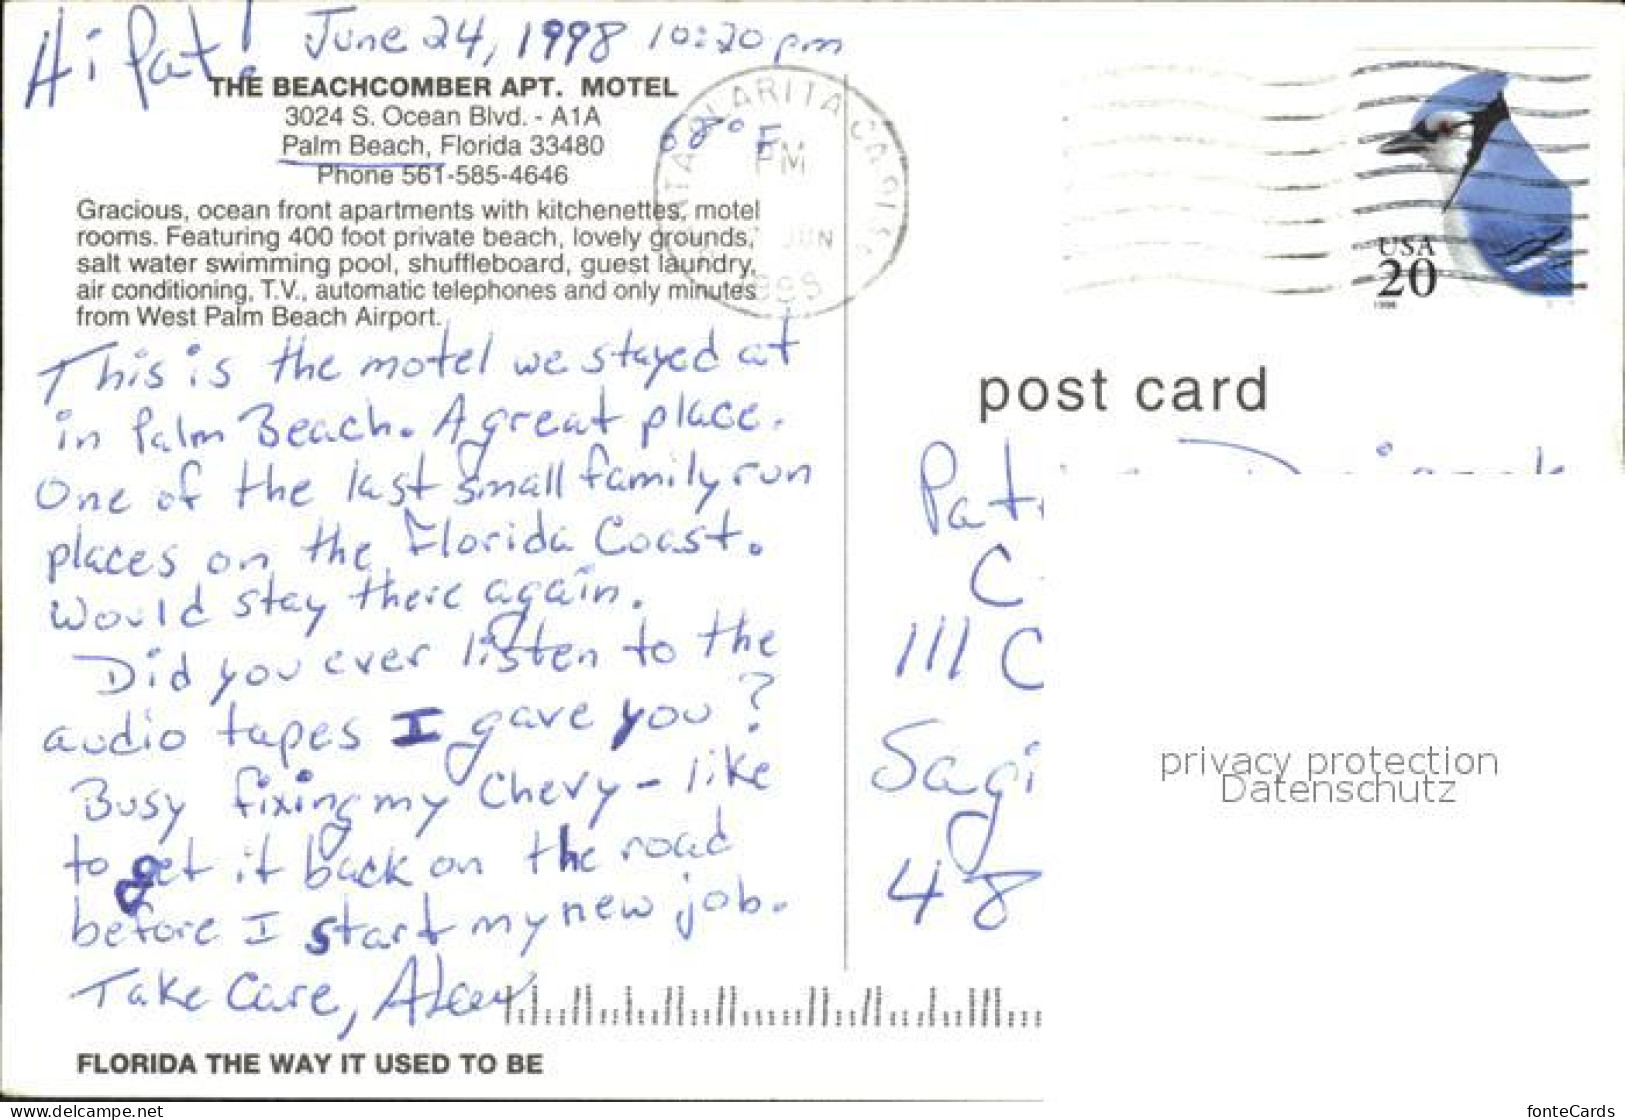 Hi Pat! June 24, 1998 10:20 pm
THE BEACHCOMBER APT. MOTEL
3024 S. Ocean Blvd. - A1A
68° F
Palm Beach, Florida 33480
Phone 561-585-4646
Gracious, ocean front apartments with kitchenettes, motel
rooms. Featuring 400 foot private beach, lovely grounds,
salt water swimming pool, shuffleboard, guest laundry,
air conditioning, T.V., automatic telephones and only minutes
from West Palm Beach Airport.
This is the motel we stayed at
in Palm Beach. A great place.
One of the last small family run
places on the Florida Coast.
Would stay there again.
Did you ever listen to the
audio tapes I gave you?
Busy fixing my Chevy - like
to get it back on the road
before I start my new job.
Take Care,
FLORIDA THE WAY IT USED TO BE
PM
JUN
USA
20
1998
post card
Pat
C
111 C
Sagi
48
privacy protection
Datenschutz
www.delcampe.net
fonteCards